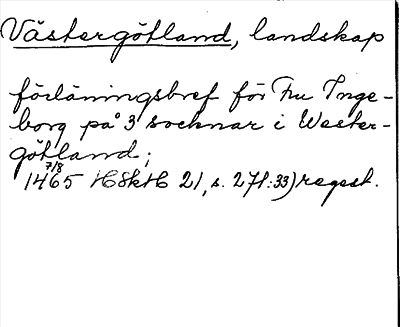 Västergötland, landskap
förläningsbref för Fru Inge-
borg på 3 socknar i Wester-
götland;
1465 7/8 HSkH 21, s. 271:33) regest.